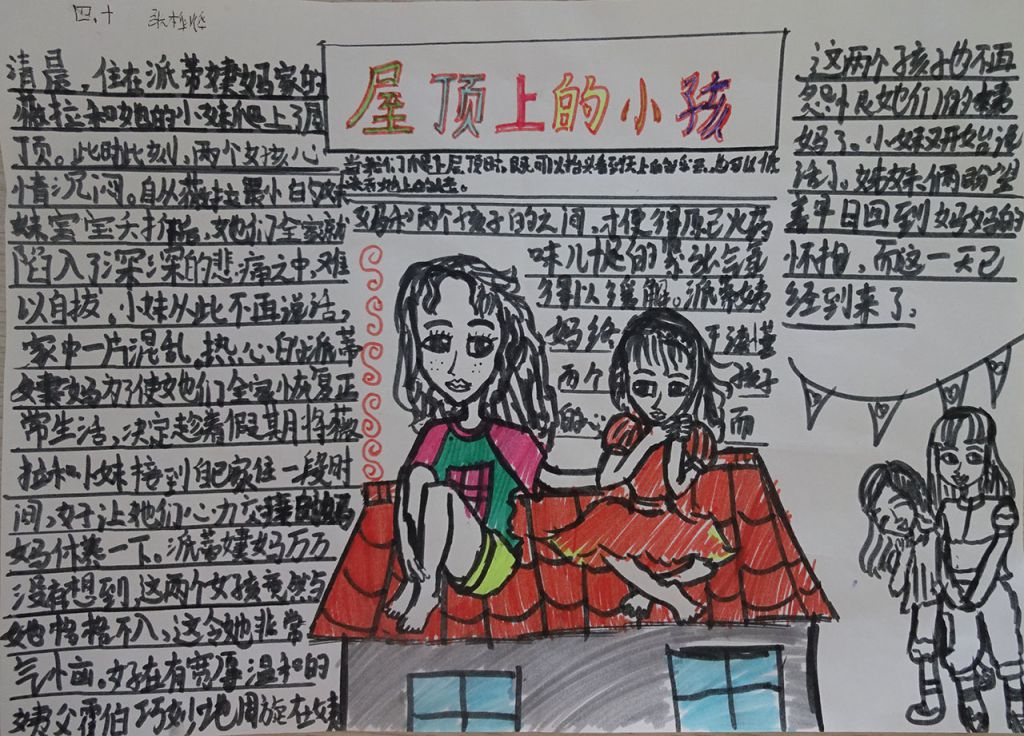 四.十
屋顶上的小孩
清晨，住在派蒂姨妈家的
薇拉和她的小妹爬上了屋
顶。此时此刻，两个女孩心
情沉闷。自从薇拉最小的妹
妹宝宝夭折后，她们全家就
陷入了深深的悲痛之中，难
以自拔。小妹从此不再说话，
家中一片混乱。热心的派蒂
姨妈为了使她们全家恢复正
常生活，决定趁着假期将薇
拉和小妹接到自己家住一段时
间，好让她们心力交瘁的妈
妈休养一下。派蒂姨妈万万
没有想到，这两个女孩竟然与
她格格不入，这令她非常
气恼。好在有宽厚温和的
姨父霍伯巧妙地周旋在姨
当我们爬上屋顶时，既可以抬头看到天上的，也可以低
妈和两个孩子的之间，才使得原已火药
味儿十足的紧张气氛
得以缓解。派蒂姨
妈终于读懂
两个孩子
的心，而
这两个孩子也不再
怨恨她们的姨
妈了。小妹又开始说
话了。姐妹俩盼望
着早日回到妈妈的
怀抱，而这一天已
经到来了。